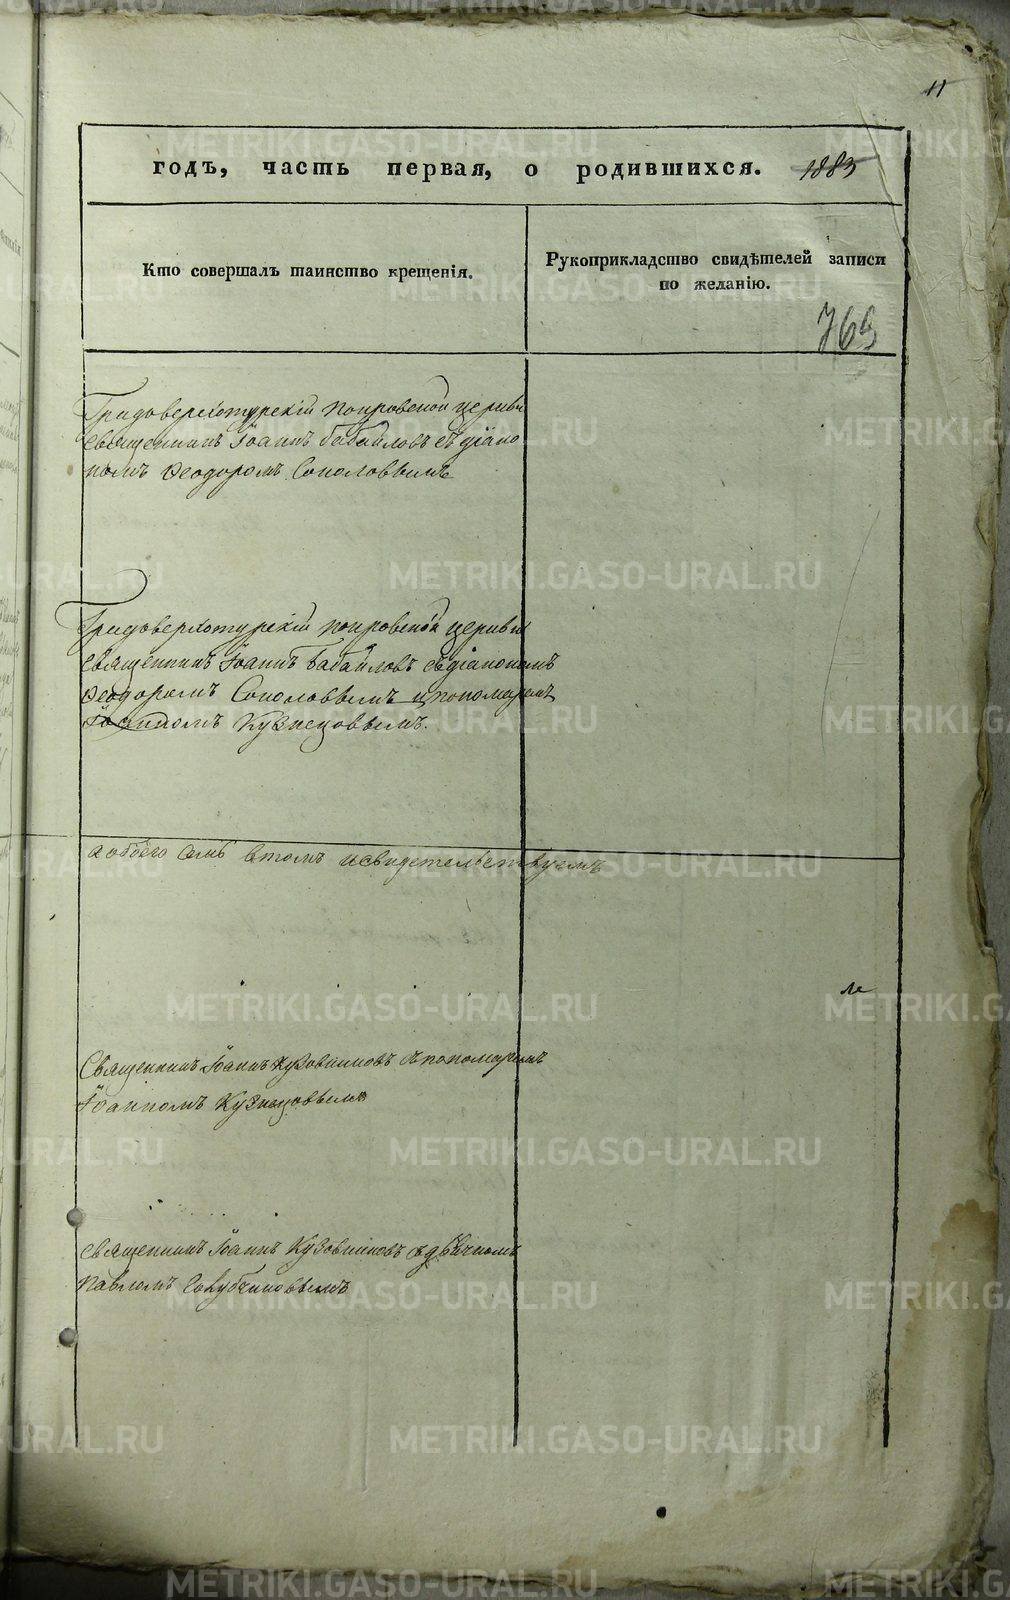 11
годъ, часть первая, о родившихся. 1885
Кто совершалъ таинство крещенія.
Рукоприкладство свидѣтелей записи
по желанію.
769
Градоверхотурскій покровской церкви
священникъ Іоаннъ Бабайловъ съ діако-
номъ Феодоромъ Соколовымъ
Градоверхотурскій покровской церкви
священникъ Іоаннъ Бабайловъ съ діакономъ
Феодоромъ Соколовымъ и пономаремъ
Іоанномъ Кузнецовымъ.
а обоего семь в томъ и свидетельствуемъ
Священникъ Іоаннъ Кузовниковъ с пономаремъ
Іоанномъ Кузнецовымъ
священникъ Іоаннъ Кузовниковъ с дьячкомъ
Павломъ
METRIKI.GASO-URAL.RU